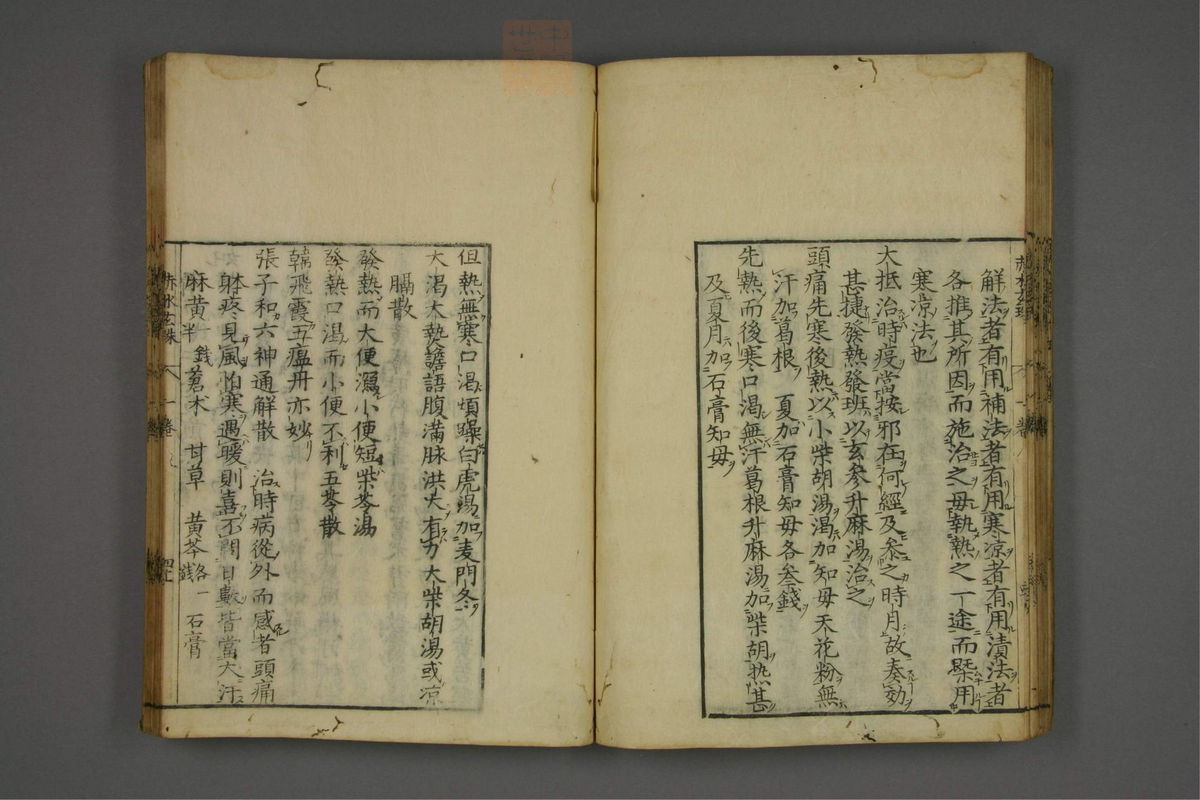 解法者有用補法者有用寒凉者有用漬法者
各推其所因而施治之毋執熱之一途而槩用
寒凉法也
大抵治時疫當按邪在何經及叅之時月故奏効
甚捷發熱發班以玄參升麻湯治之
頭痛先寒後熱以小柴胡湯渴加知母天花粉無
汗加葛根 夏加石膏知母各叁錢
先熱而後寒口渴無汗葛根升麻湯加柴胡热甚
及夏月加石膏知母
但熱無寒口渴煩躁白虎湯加麦門冬
大渴大熱譫語腹滿脉洪大有力大柴胡湯或凉
膈散
發熱而大便濕小便短柴苓湯
發熱口渴而小便不利五苓散
韓飛霞五瘟丹亦妙
張子和六神通解散 治時病從外而感者頭痛
躰疼見風怕寒遇暖則喜不問日數皆當大汗
麻黄一錢半 蒼术 甘草 黄芩各一錢 石膏
赤水玄珠 一卷